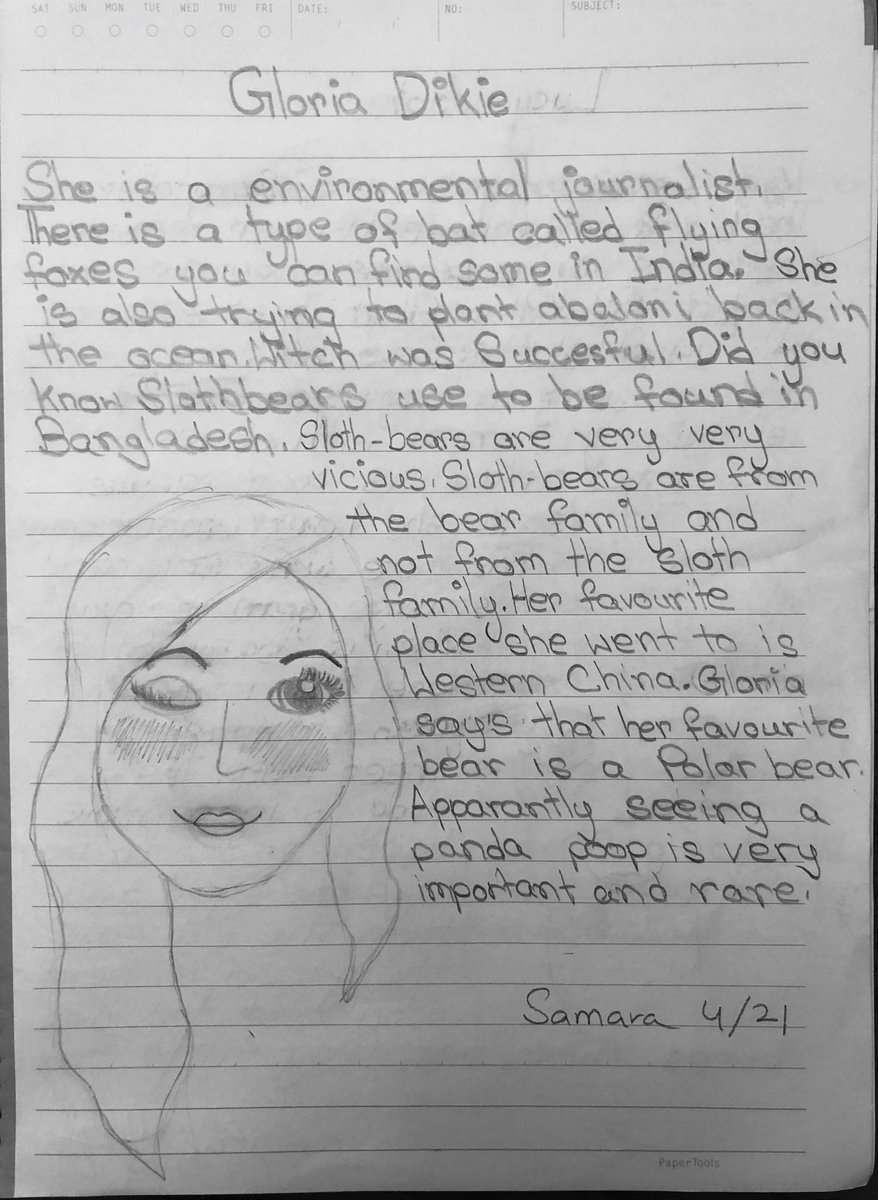 SAT SUN MON TUE WED THU FRI DATE: NO: SUBJECT:
Gloria Dikie
She is a environmental journalist.
There is a type of bat called flying
foxes you can find some in India. She
is also trying to plant abaloni back in
the ocean. Witch was Succesful. Did you
know Slothbears use to be found in
Bangladesh. Sloth-bears are very very
vicious. Sloth-bears are from
the bear family and
not from the sloth
family. Her favourite
place she went to is
Western China. Gloria
say's that her favourite
bear is a Polar bear.
Apparantly seeing a
panda poop is very
important and rare.
Samara 4/21
PaperTools